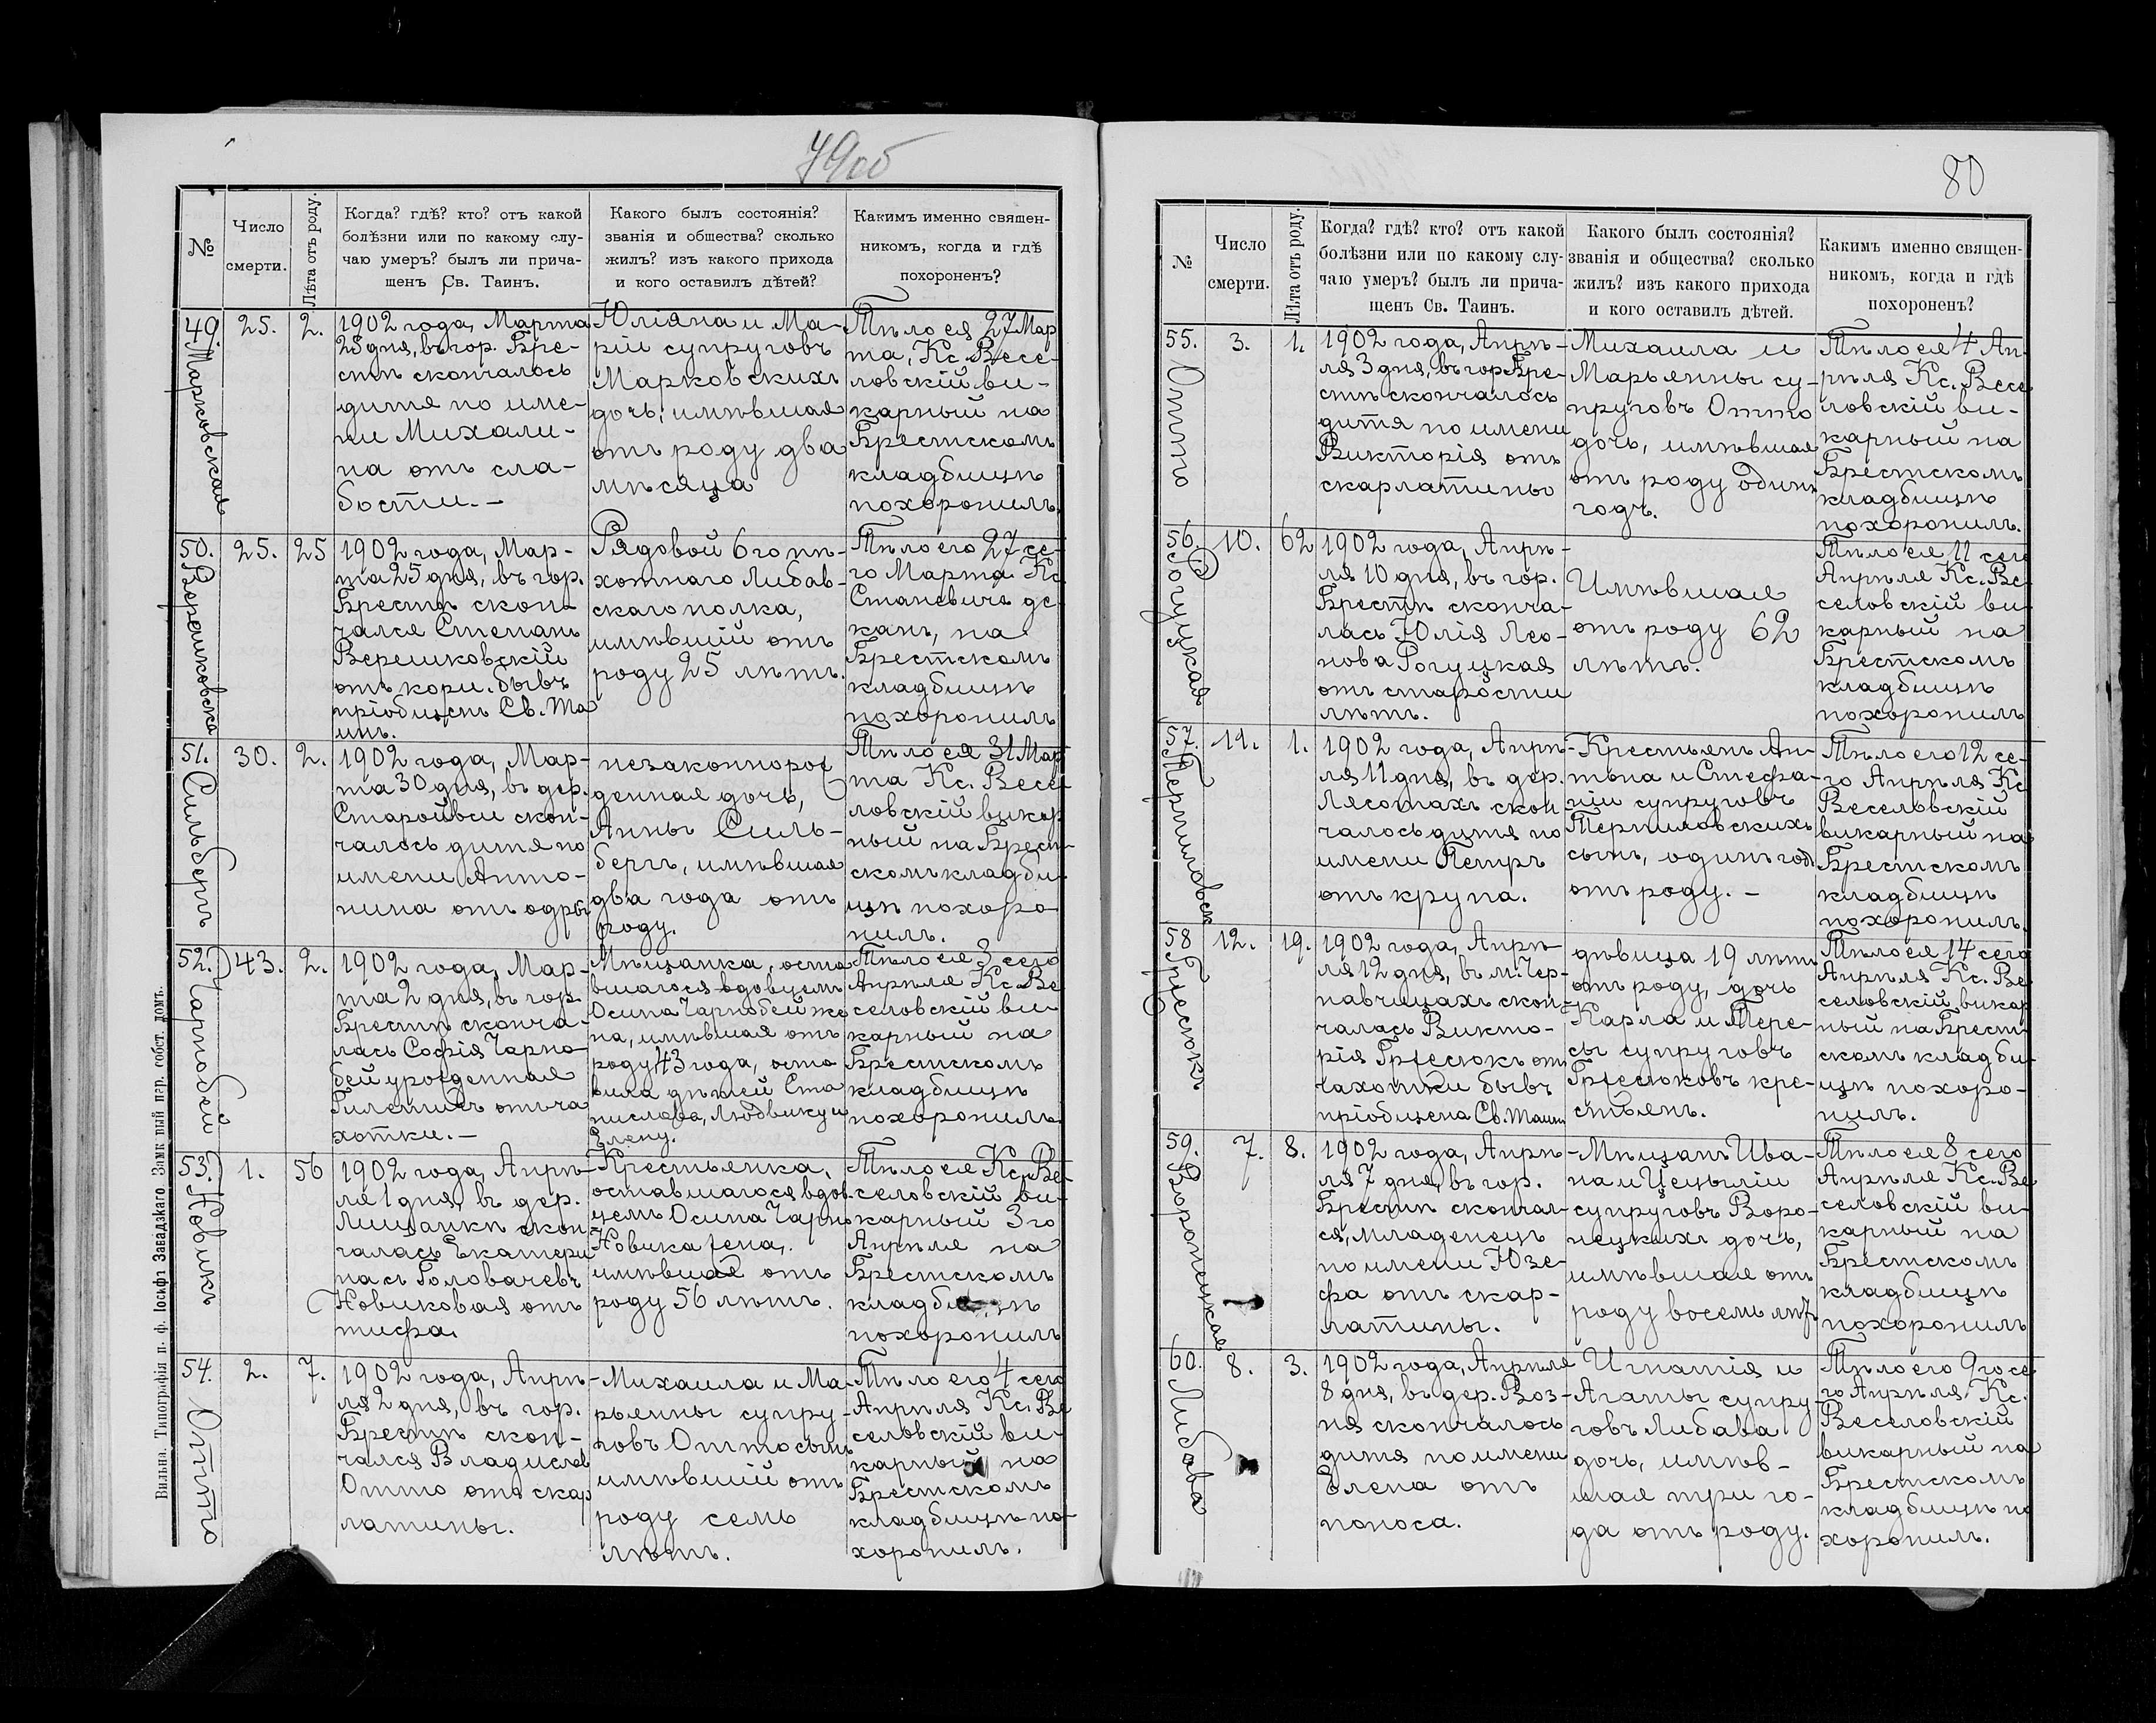 79об
№
Число
смерти.
Лѣта отъ роду.
Когда? гдѣ? кто? отъ какой
болѣзни или по какому слу-
чаю умеръ? былъ ли прича-
щенъ Св. Таинъ.
Какого былъ состоянія?
званія и общества? сколько
жилъ? изъ какого прихода
и кого оставилъ дѣтей?
Какимъ именно священ-
никомъ, когда и гдѣ
похороненъ?
49.
Марковская
25.
2.
1902 года, Марта
25 дня, въ гор. Бре-
стѣ скончалось
дитя по име-
ни Михали-
на отъ сла-
бости.-
Юліяна и Ма-
ріи супруговъ
Марковскихъ
дочь, имѣвшая
отъ роду два
мѣсяца
Тѣло ея 27 Мар
та, Кс. Весе-
ловскій ви-
карный на
Брестскомъ
кладбищѣ
похоронилъ.
50.
25.
25
1902 года, Мар-
та 25 дня, въ гор.
Брестѣ скон-
чался Степанъ
Верешковскій
отъ кори. бывъ
пріобщенъ Св. Та
инъ.
Рядовой 6го пѣ-
хотнаго Либав-
скаго полка,
имѣвшій отъ
роду 25 лѣтъ.
Тѣло его 27 се-
го Марта Кс.
Станевичъ де-
канъ, на
Брестскомъ
кладбищѣ
похоронилъ
51.
Сильбергъ
30.
2.
1902 года, Мар-
та 30 дня, въ дер.
Старойвси скон-
чалось дитя по
имени Анто-
нина отъ одры
незаконнорож
денная дочь,
Анны Силь-
бергъ, имѣвшая
два года отъ
роду.
Тѣло ея 31 Мар
та Кс. Весе-
ловскій викар
ный на Брест-
скомъ кладби-
щѣ похоро
нилъ.
52.
Чарнобей
43.
2.
1902 года, Мар-
та 2 дня, въ гор.
Брестѣ сконча-
лась Софія Чарно-
бей урожденная
отъ ча
хотки.-
Мѣщанка, оста
вшагося вдовцемъ
Осипа Чарнобей же
на, имѣвшая отъ
роду 43 года, оста
вила дѣтей Ста
нислава, Людвику и
Елену.
Тѣло ея 3 сего
Апрѣля Кс. Ве
селовскій ви-
карный на
Брестскомъ
кладбищѣ
похоронилъ.
53.
Новикъ
1.
56
1902 года, Апрѣ-
ля 1 дня, въ дер.
скон
чалась Екатери
на съ Головачевъ
Новиковая отъ
тифа.
Крестьянка,
оставшагося вдов-
цемъ Осипа Чарно
Новика жена,
имѣвшая отъ
роду 56 лѣтъ.
Тѣло ея Кс. Ве-
селовскій ви-
карный 3 го
Апрѣля на
Брестскомъ
кладбищѣ
похоронилъ
54.
Отто
2.
7.
1902 года, Апрѣ-
ля 2 дня, въ гор.
Брестѣ скон-
чался Владислав
Отто отъ скар
латины.
Михаила и Ма-
рьянны супру-
говъ Отто сынъ
имѣвшій отъ
роду семь
лѣтъ.
Тѣло его 4 сего
Апрѣля Кс. Ве
селовскій ви-
карный на
Брестскомъ
кладбищѣ по-
хоронилъ.
Вильна. Типографія п. ф. Іосифъ Завадзкаго Замк вый пер. собст. домъ.
80
№
Число
смерти.
Лѣта отъ роду.
Когда? гдѣ? кто? отъ какой
болѣзни или по какому слу-
чаю умеръ? былъ ли прича-
щенъ Св. Таинъ.
Какого былъ состоянія?
званія и общества? сколько
жилъ? изъ какого прихода
и кого оставилъ дѣтей.
Какимъ именно священ-
никомъ, когда и гдѣ
похороненъ?
55.
Отто
3.
1.
1902 года, Апрѣ-
ля 3 дня, въ гор. Бре-
стѣ скончалось
дитя по имени
Викторія отъ
скарлатины
Михаила и
Марьянны су-
пруговъ Отто
дочь, имѣвшая
отъ роду одинъ
годъ.
Тѣло ея 4 Ап-
рѣля Кс. Весе
ловскій ви-
карный на
Брестскомъ
кладбищѣ
похоронилъ.
56.
Рогуцкая
10.
62
1902 года, Апрѣ-
ля 10 дня, въ гор.
Брестѣ сконча-
лась Юлія Лео-
нова Рогуцкая
отъ старости
лѣтъ.
Имѣвшая
отъ роду 62
лѣтъ.
Тѣло ея 11 сего
Апрѣля Кс. Ве-
селовскій ви-
карный на
Брестскомъ
кладбищѣ
похоронилъ
57.
11.
1.
1902 года, Апрѣ-
ля 11 дня, въ дер.
Лясотахъ скон
чалось дитя по
имени Петръ
отъ крупа.
Крестьянъ Ан-
тона и Стефа-
ніи супруговъ
Терпиловскихъ
сынъ, одинъ годъ
отъ роду.-
Тѣло его 12 се-
го Апрѣля Кс.
Веселовскій
викарный на
Брестскомъ
кладбищѣ
похоронилъ.
58
Гржесюкъ
12.
19.
1902 года, Апрѣ-
ля 12 дня, въ м. Чер-
навчицахъ скон-
чалась Викто-
рія Гржесюкъ отъ
чахотки бывъ
пріобщена Св. Таинъ
дѣвица 19 лѣтъ
отъ роду, дочь
Карла и Тере-
сы супруговъ
Гржесюковъ кре-
стьянъ.
Тѣло ея 14 сего
Апрѣля Кс. Ве
селовскій викар
ный на Брест-
скомъ кладби-
щѣ похоро-
нилъ.
59.
Воронецкая
7.
8.
1902 года, Апрѣ-
ля 7 дня, въ гор.
Брестѣ скончал-
ся, младенецъ
по имени Юзе-
фа отъ скар-
латины.
Мѣщанъ Ива-
на и Цецыліи
супруговъ Воро-
нецкихъ дочь,
имѣвшая отъ
роду восемь лѣт
Тѣло ея 8 сего
Апрѣля Кс. Ве
селовскій ви-
карный на
Брестскомъ
кладбищѣ
похоронилъ
60.
Либава
8.
3.
1902 года, Апрѣля
8 дня, въ дер. Воз-
ня скончалось
дитя по имени
Елена отъ
поноса.
Игнатія и
Агаты супру-
говъ Либава
дочь, имѣв-
шая три го-
да отъ роду.
Тѣло его 9го се
го Апрѣля Кс.
Веселовскій
викарный на
Брестскомъ
кладбищѣ по
хоронилъ.